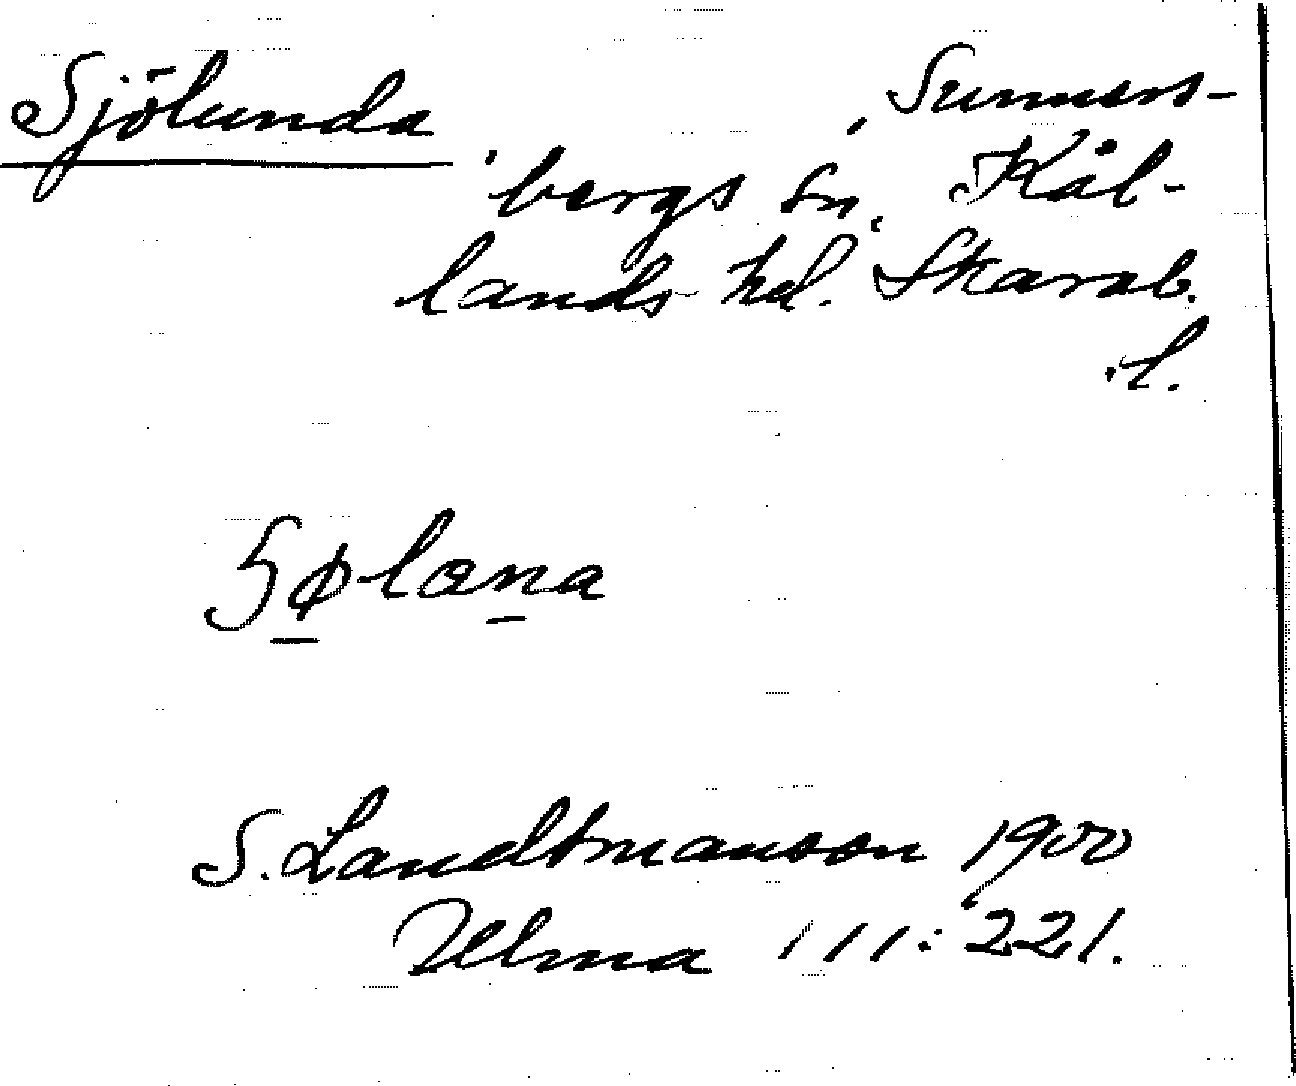 Sjölunda, Sunners-
bergs sn, Kål-
lands hd. Skarab.
l.
S. Landtmanson 1900
Ulma 111:221.